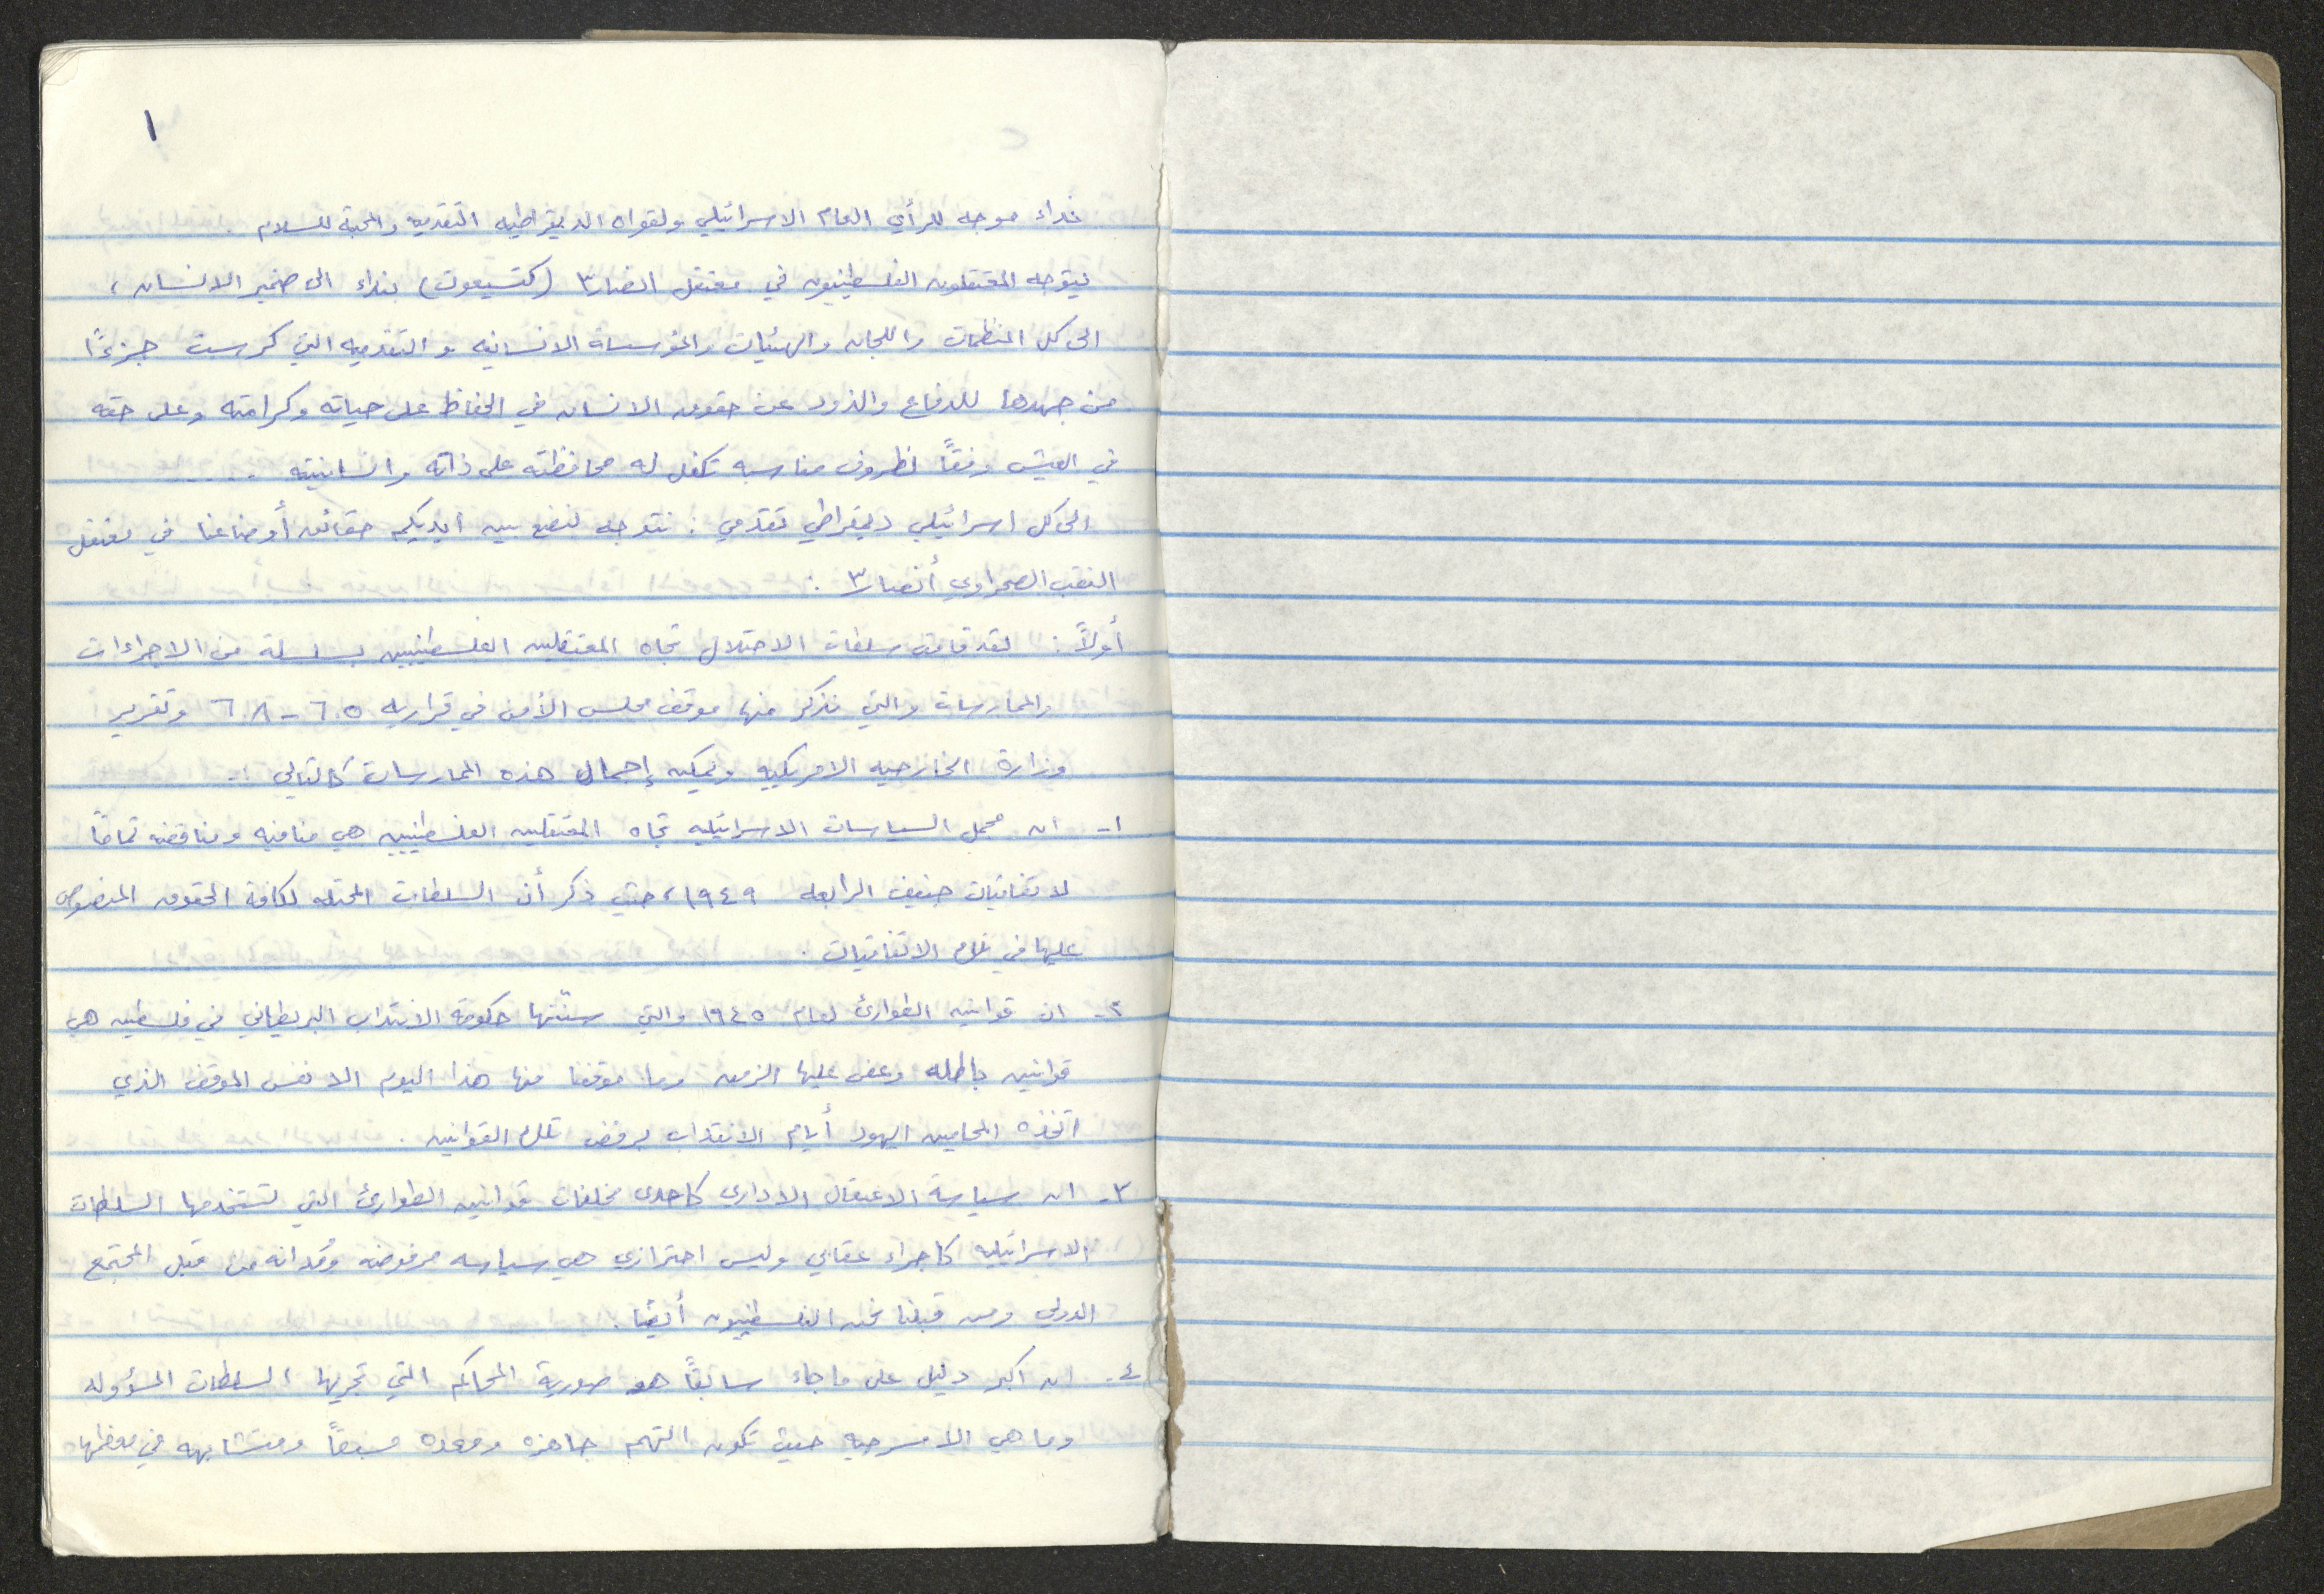 ١
نداء موجه للرأي العام الاسرائيلي ولقواه الديمقراطيه التقدميه والمحبة للسلام .
يتوجه المعتقلون الفلسطينيون في معتقل انصار٣ (كتسيعوت) بنداء الى ضمير الانسان ،
الى كل المنظمات واللجان والهيئات والمؤسسات الانسانيه والتقدميه التي كرست جزءًا
من جهدها للدفاع والذود عن حقوق الانسان في الحفاظ على حياته وكرامته وعلى حقه
في العيش وفقًا لظروف مناسبه تكفل له محافظته على ذاته وانسانيته .
الى كل اسرائيلي ديمقراطي تقدمي : نتوجه لنضع بين ايديكم حقائق أوضاعنا في معتقل
النقب الصحراوي أنصار٣ :
أولاً : لقد قامت سلطات الاحتلال تجاه المعتقلين الفلسطينيين بسلسلة من الاجراءات
والممارسات والتي نذكر منها موقف مجلس الأمن في قراريه ٦٠٥ - ٦٠٨ وتقرير
وزارة الخارجيه الامريكيه ويمكن إجمال هذه الممارسات كالتالي :-
١- ان مجمل السياسات الاسرائيليه تجاه المعتقلين الفلسطينيين هي منافيه ومناقضه تمامًا
لاتفاقيات جنيف الرابعه ١٩٤٩، حيث ذكر أن السلطات المحتله لكافة الحقوق المنصوص
عليها في تلك الاتفاقيات .
٢- ان قوانين الطوارئ لعام ١٩٤٥ والتي سنّتها حكومة الانتداب البريطاني في فلسطين هي
قوانين باطله وعفى عليها الزمن وما موقفنا منها هذا اليوم الا نفس الموقف الذي
اتخذه المحامين اليهود أيام الانتداب برفض تلك القوانين .
٣- ان سياسة الاعتقال الاداري كاحدى مخلفات قوانين الطوارئ التي تستخدمها السلطات
الاسرائيليه كاجراء عقابي وليس احترازي هي سياسه مرفوضه ومُدانه من قبل المجتمع
الدولي ومن قبلنا نحن الفلسطينيون أيضًا .
٤- ان اكبر دليل على ما جاء سابقًا هو صورية المحاكم التي تجريها السلطات المسؤوله
وما هي الا مسرحيه حيث تكون التهم جاهزه ومعده مسبقًا ومتشابهه في معظمها